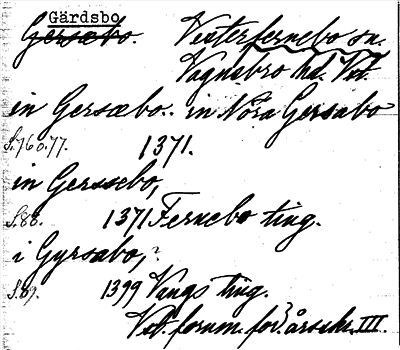 Gärdsbo
Gersæbo. Vesterfernebo sn.
Vagnsbro hd. Vst.
in Gersæbo.. in Nöra Gersabo
S. 76 o. 77. 1371.
in Gerssebo,
S. 88. 1371 Fernebo ting.
i Gyrsabo, ?
S. 89. 1399 Vangs ting.
Vst. fornm. för. årsskr. III.